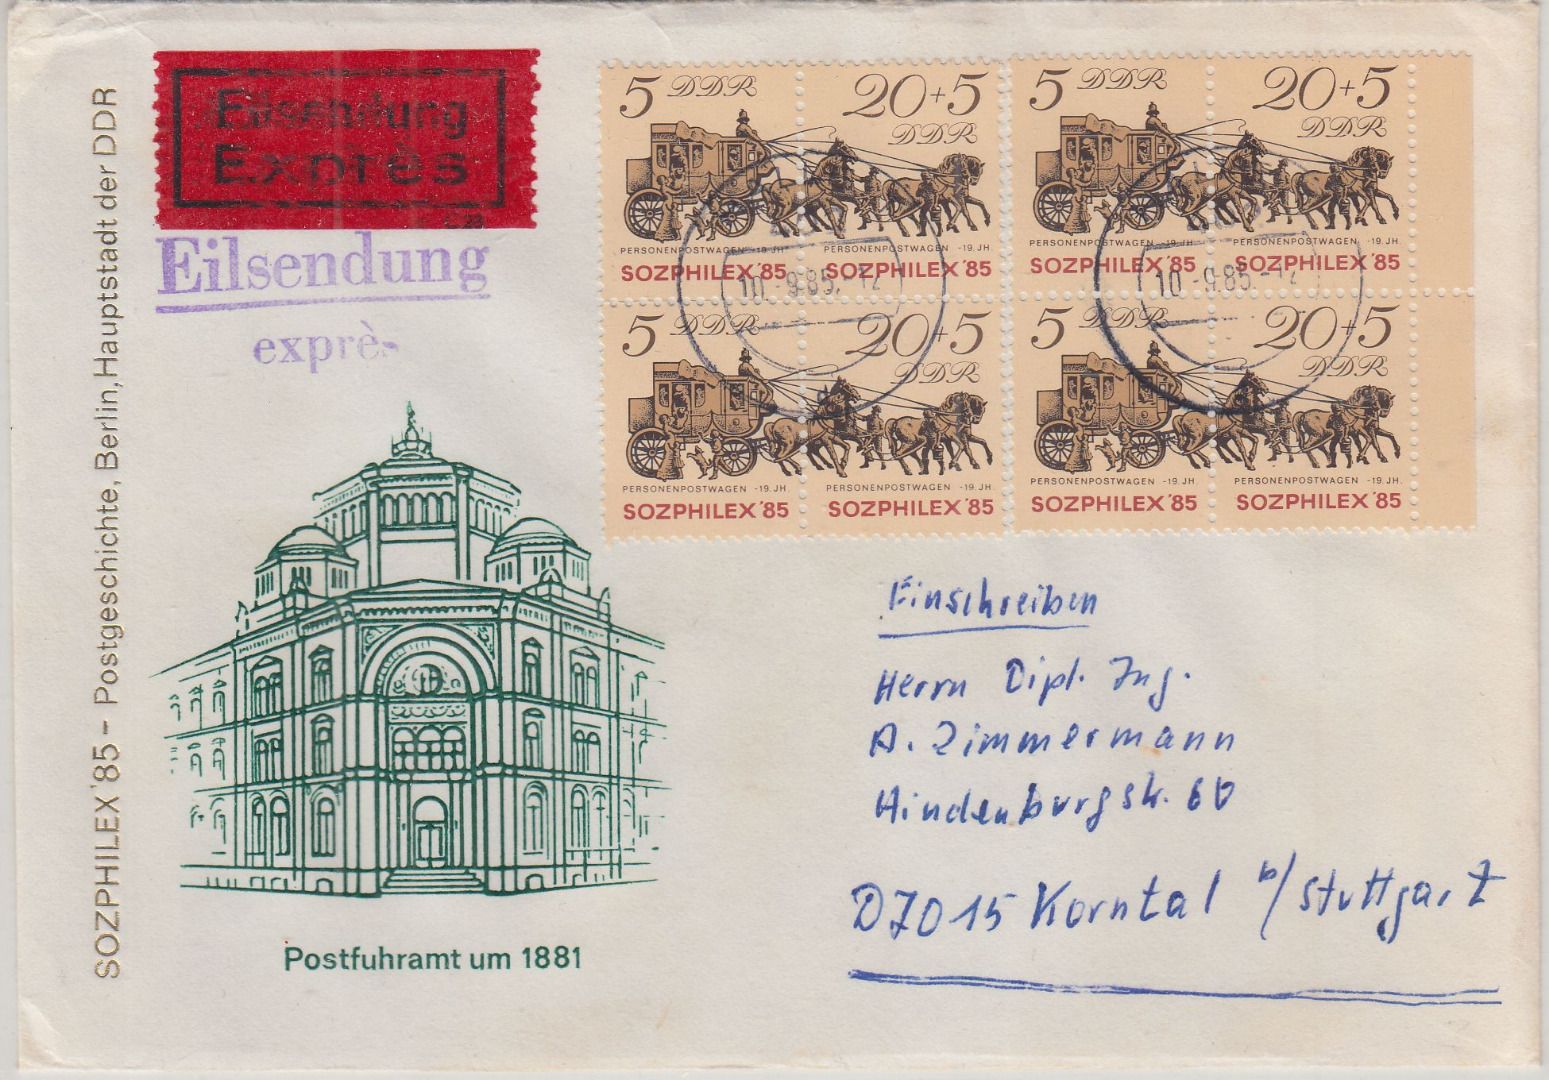 SOZPHILEX '85 - Postgeschichte, Berlin, Hauptstadt der DDR
Eilsendung
Exprès
Eilsendung
exprès
5 DDR 20+5 DDR
PERSONENPOSTWAGEN -19. JH. PERSONENPOSTWAGEN -19. JH.
SOZPHILEX '85 SOZPHILEX '85
5 DDR 20+5 DDR
PERSONENPOSTWAGEN -19. JH. PERSONENPOSTWAGEN -19. JH.
SOZPHILEX '85 SOZPHILEX '85
5 DDR 20+5 DDR
PERSONENPOSTWAGEN -19. JH. PERSONENPOSTWAGEN -19. JH.
SOZPHILEX '85 SOZPHILEX '85
5 DDR 20+5 DDR
PERSONENPOSTWAGEN -19. JH. PERSONENPOSTWAGEN -19. JH.
SOZPHILEX '85 SOZPHILEX '85
10.-9.85.-12
10.-9.85.-12
Einschreiben
Herrn Dipl. Ing.
A. Zimmermann
Hindenburgstr. 60
D7015 Korntal b/Stuttgart
Postfuhramt um 1881